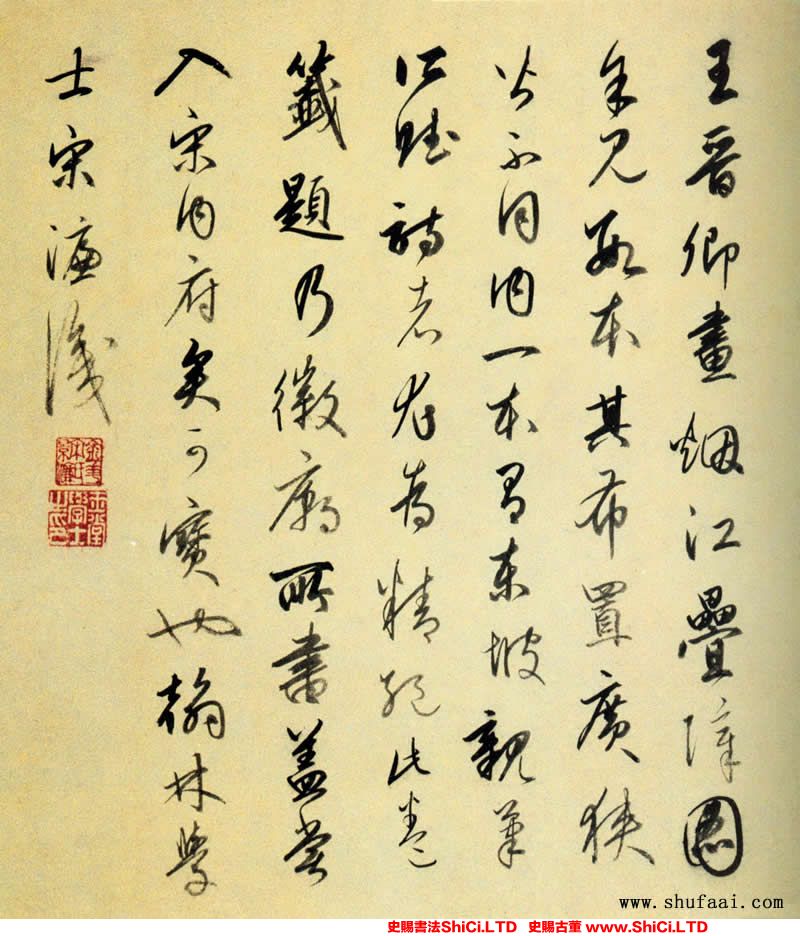 王晉卿畫烟江疊嶂圖
余見數本其布置廣狹
皆不同内一本有東坡親筆
江賦詩者尤為精絶此卷
籤題乃徽廟所書蓋嘗
入宋内府矣可寶也翰林學
士宋濂識
www.shufaai.com
史賜書法ShiCi.LTD 史賜古董 www.ShiCi.LTD